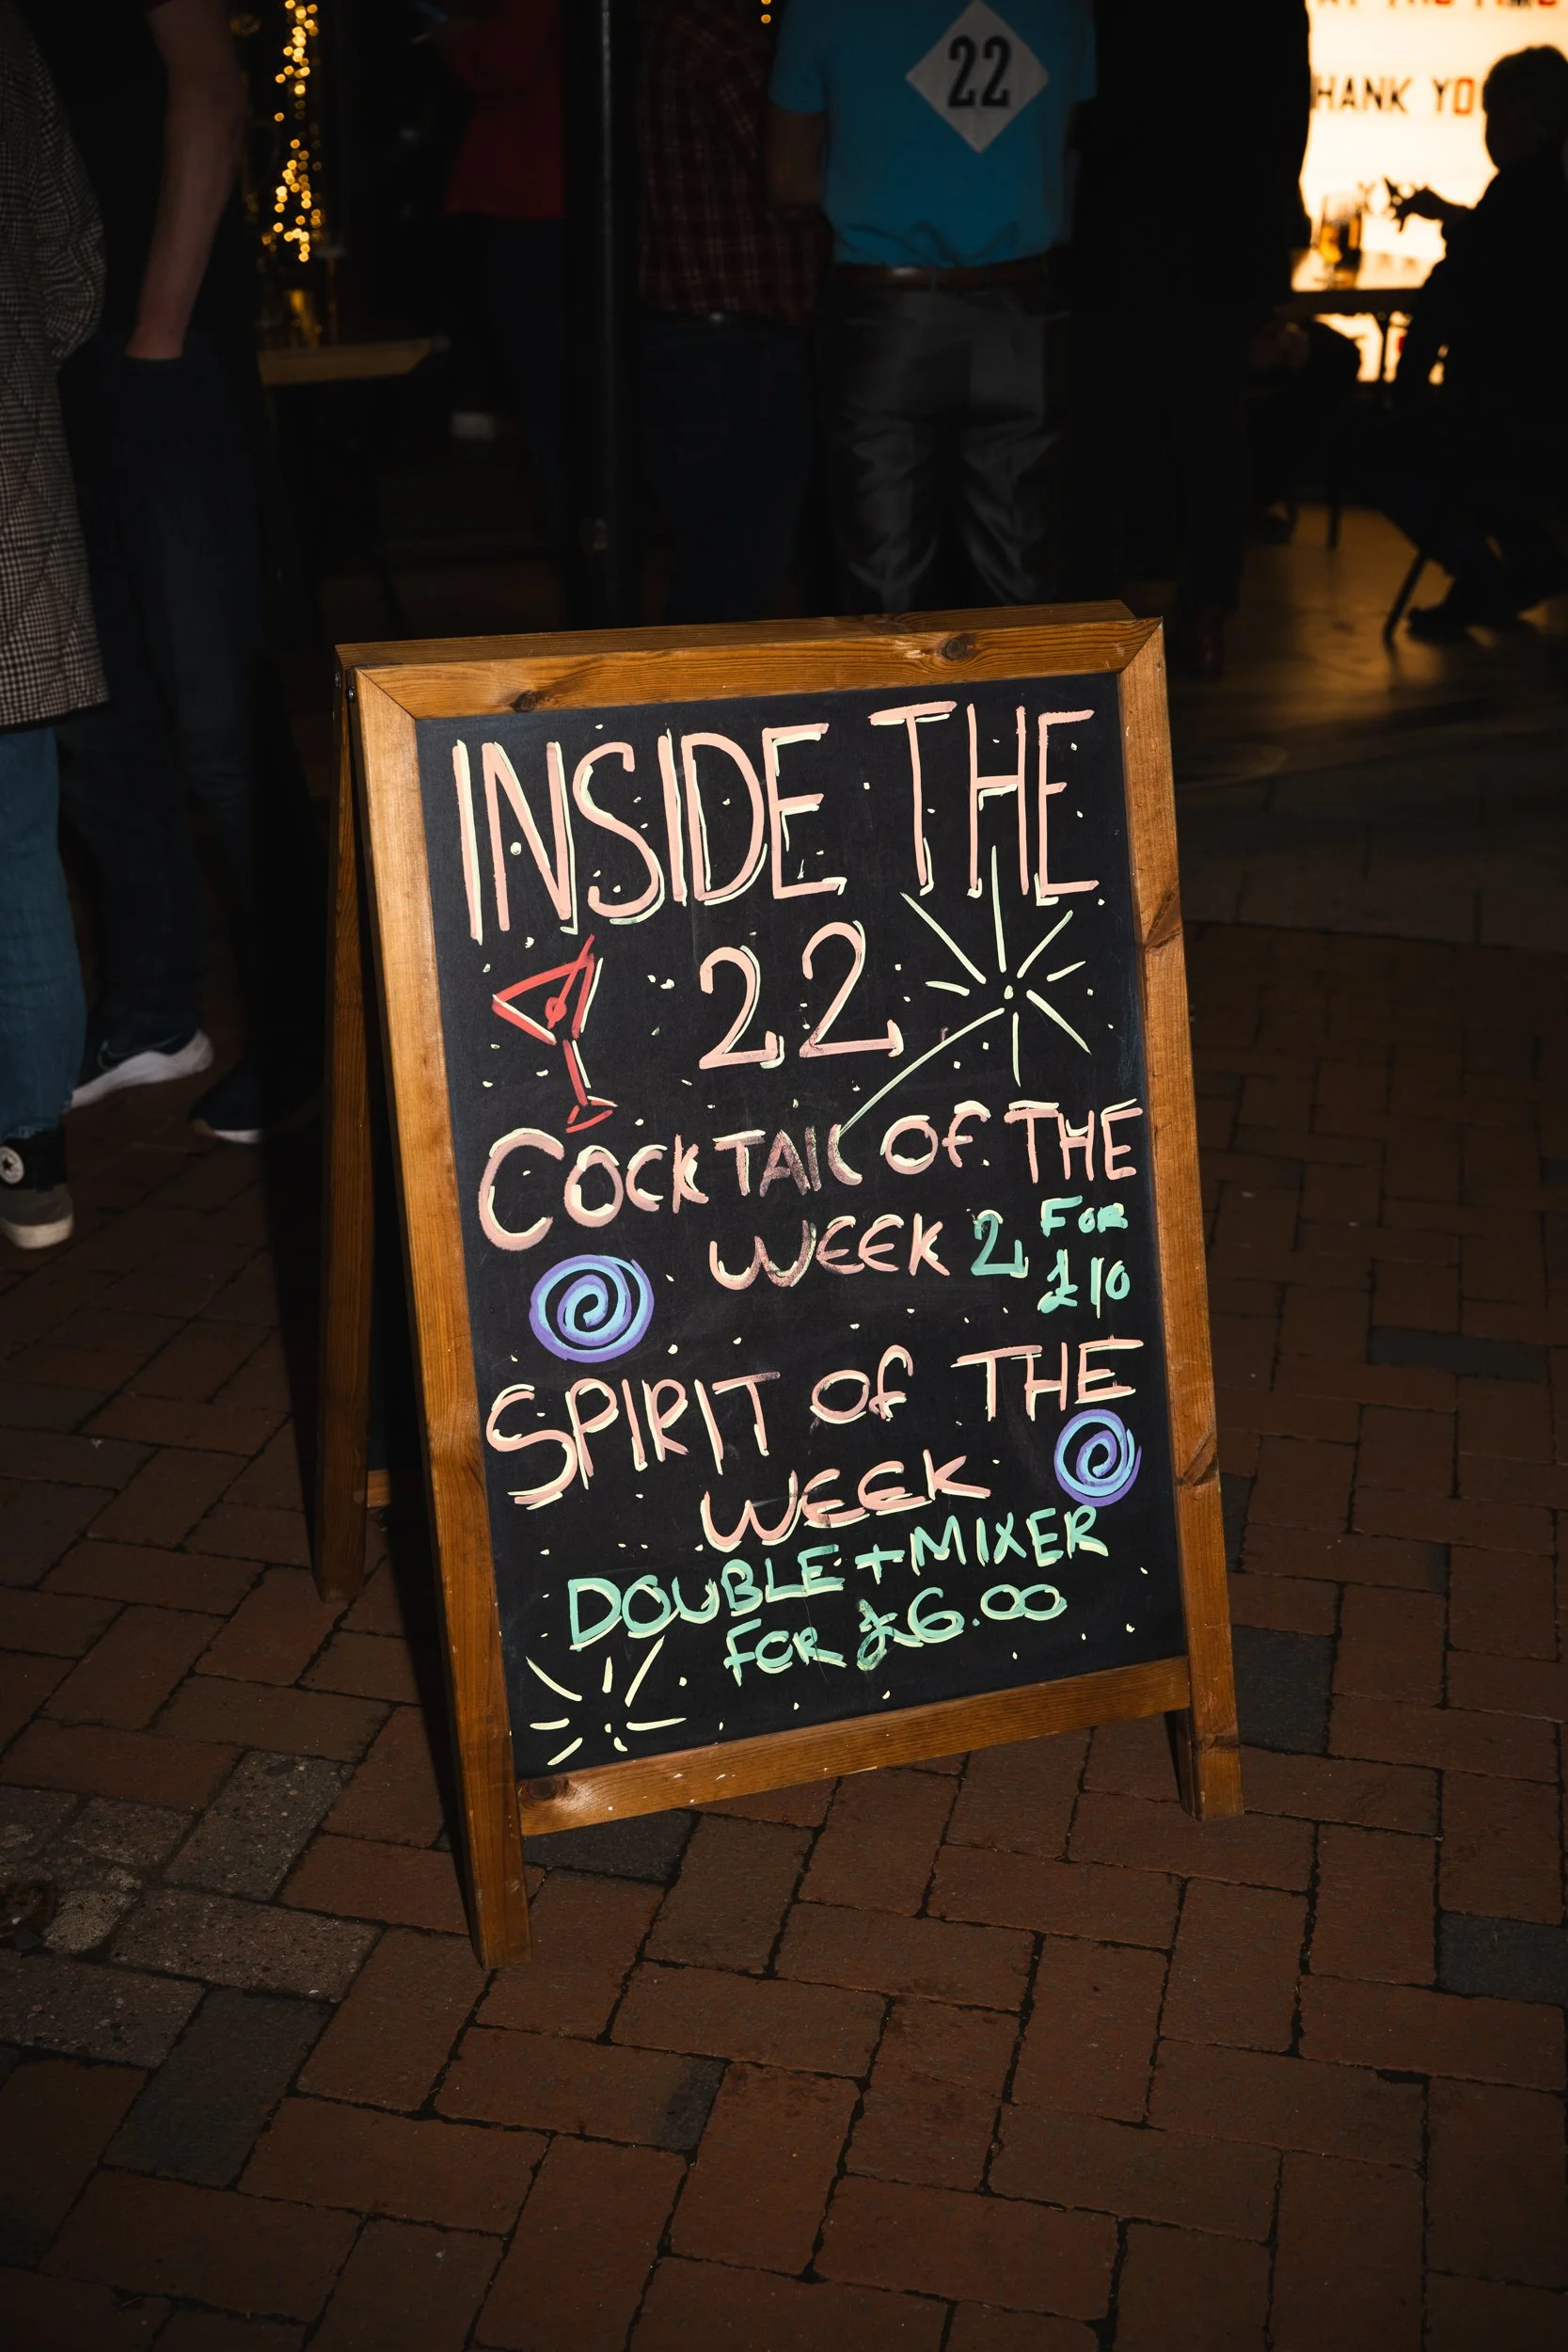 22
HANK YO
INSIDE THE
22
COCKTAIL OF THE
WEEK 2 FOR
£10
SPIRIT OF THE
WEEK
DOUBLE + MIXER
FOR £6.00